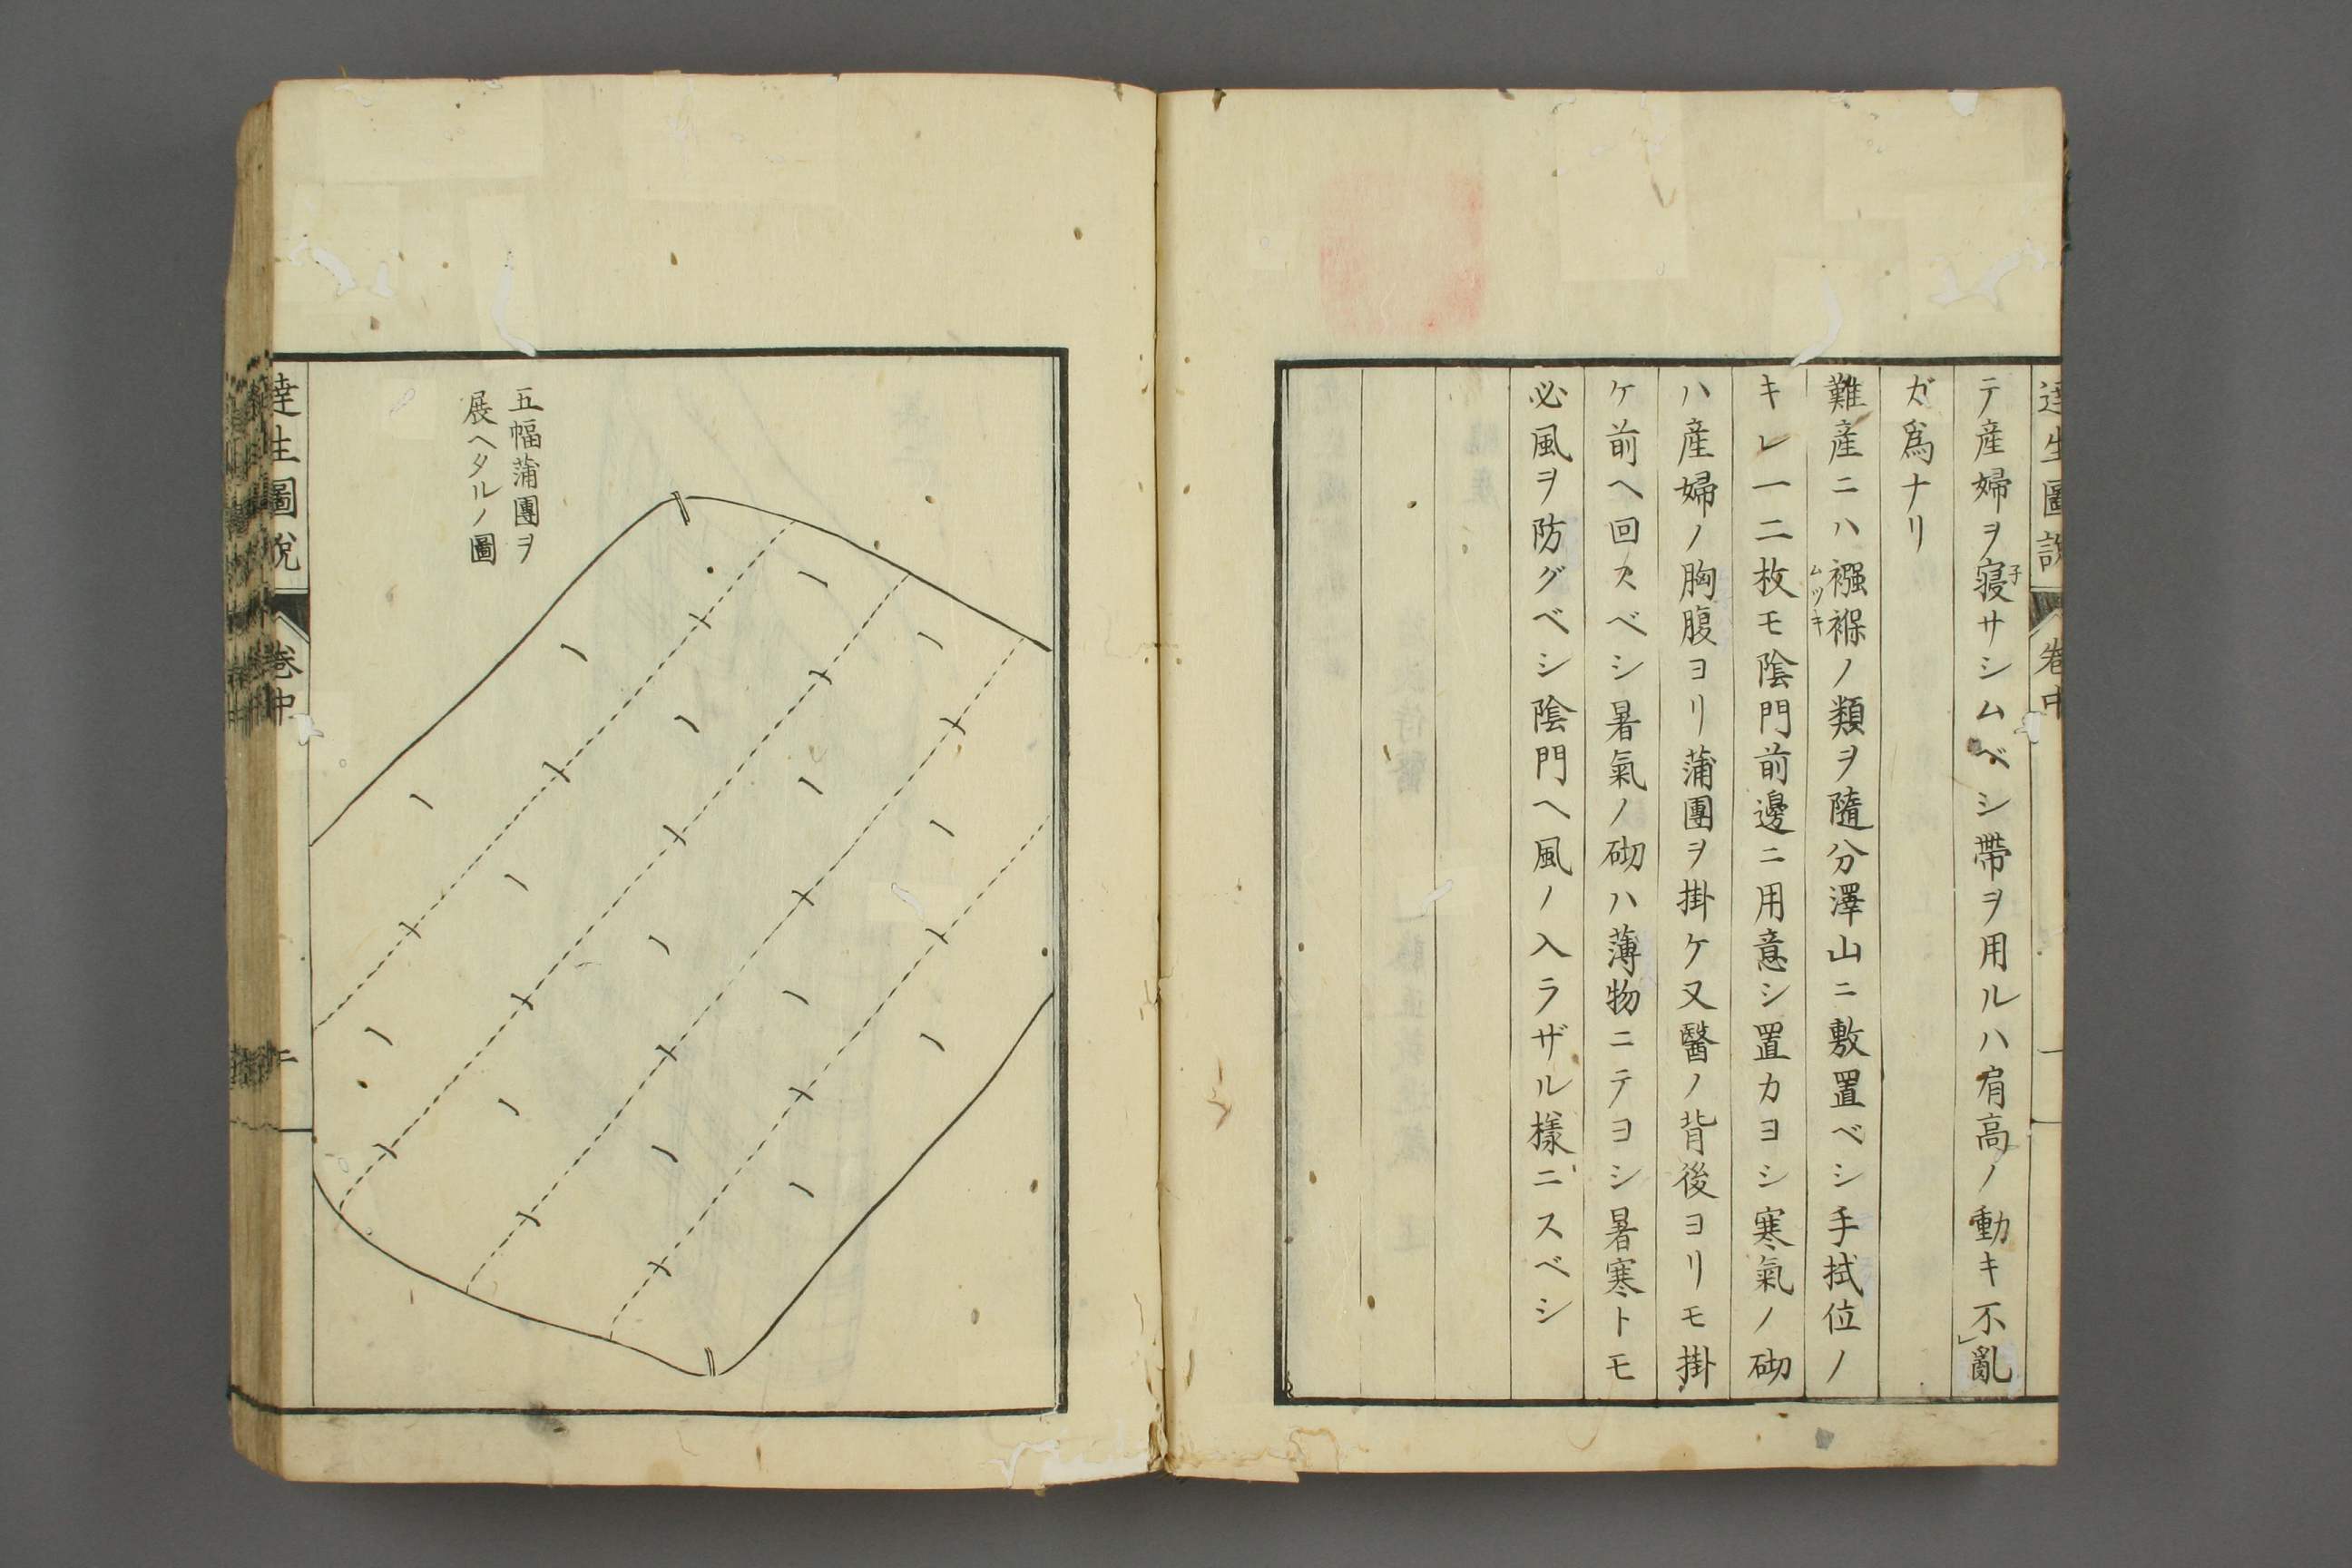 達生圖說 卷中 一
テ産婦ヲ寢サシムベシ帶ヲ用ルハ肩高ノ動キ不亂
ガ爲ナリ
難産ニハ襁褓ノ類ヲ隨分澤山ニ敷置ベシ手拭位ノ
キレ一二枚モ陰門前邊ニ用意シ置カヨシ寒氣ノ砌
ハ産婦ノ胸腹ヨリ蒲團ヲ掛ケ又醫ノ背後ヨリモ掛
ケ前ヘ回スベシ暑氣ノ砌ハ薄物ニテヨシ暑寒トモ
必風ヲ防グベシ陰門ヘ風ノ入ラザル樣ニスベシ
子
ムツキ
五幅蒲團ヲ
展ヘタルノ圖
達生圖說 卷中 二